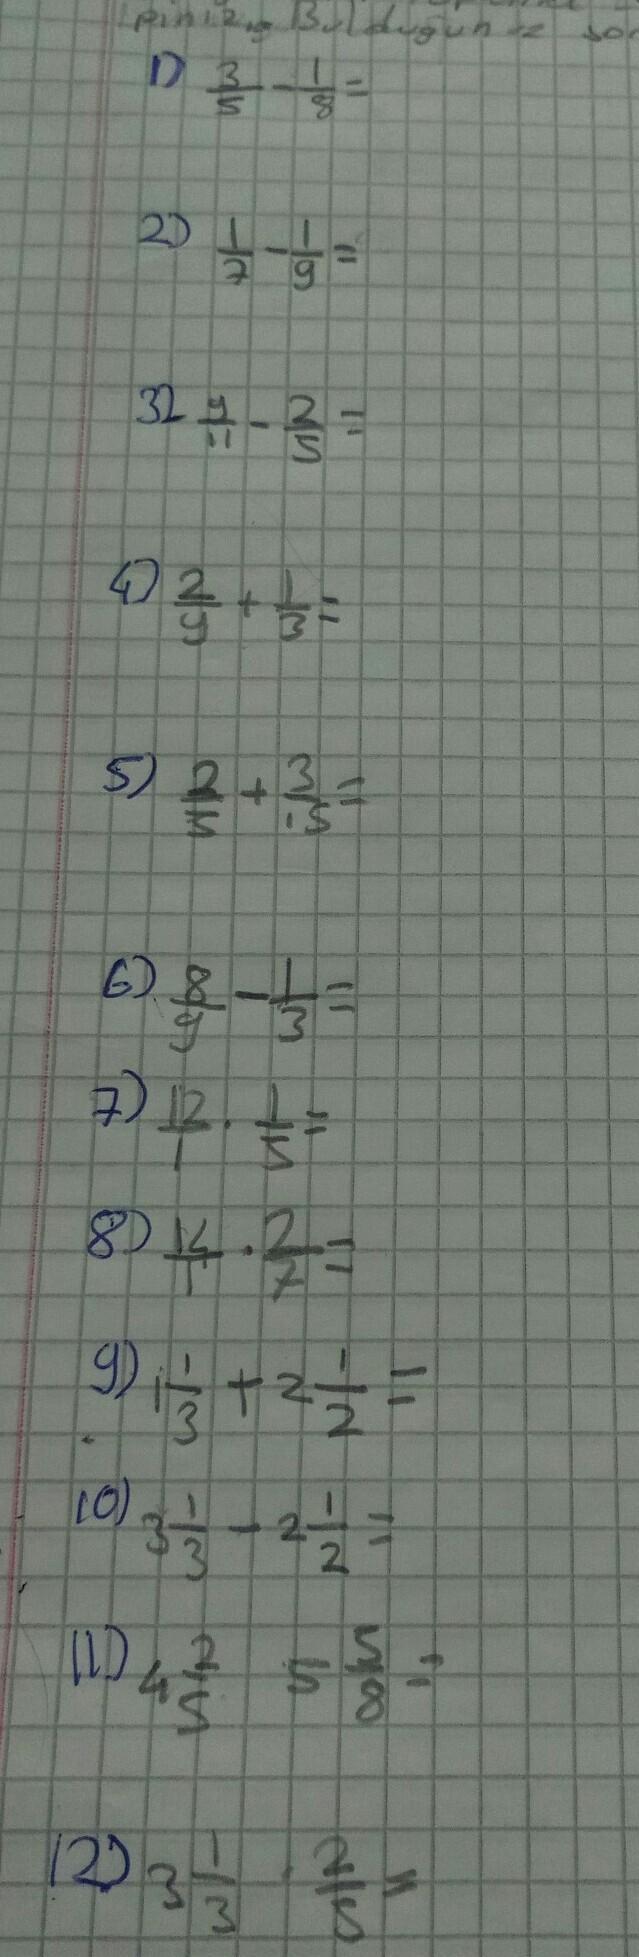 Bulduğunuz
1) 3/5 - 1/8 =
2) 1/7 - 1/9 =
3) 9/11 - 2/5 =
4) 2/9 + 1/3 =
5) 2/5 + 3/15 =
6) 8/9 - 1/3 =
7) 12/1 . 1/5 =
8) /1 . 2/7 =
9) 1 1/3 + 2 1/2 =
10) 3 1/3 - 2 1/2 =
11) 4 2/5 5 5/8 =
12) 3 1/3 . 2/5 =